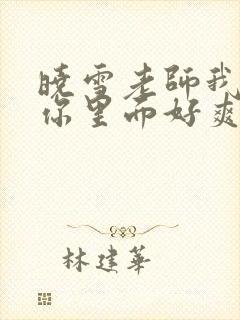 曉雪老師我
你里面好爽
林建華